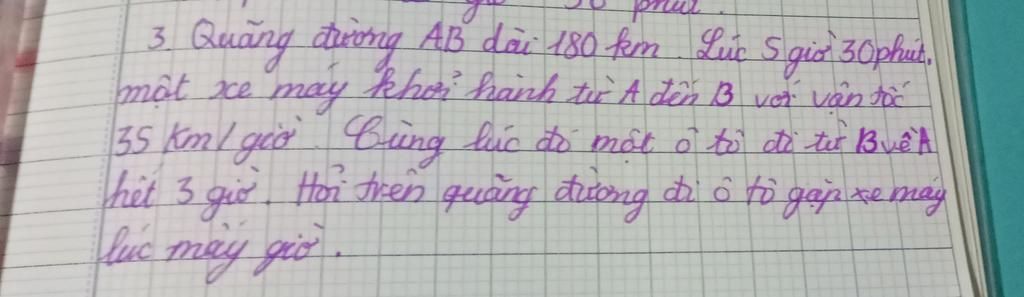 30 phút.
3. Quãng đường AB dài 180 km. Lúc 5 giờ 30 phút,
một xe máy khởi hành từ A đến B với vận tốc
35 Km/giờ. Cùng lúc đó một ô tô đi từ B về A
hết 3 giờ. Hỏi trên quãng đường đi ô tô gặp xe máy
lúc mấy giờ.